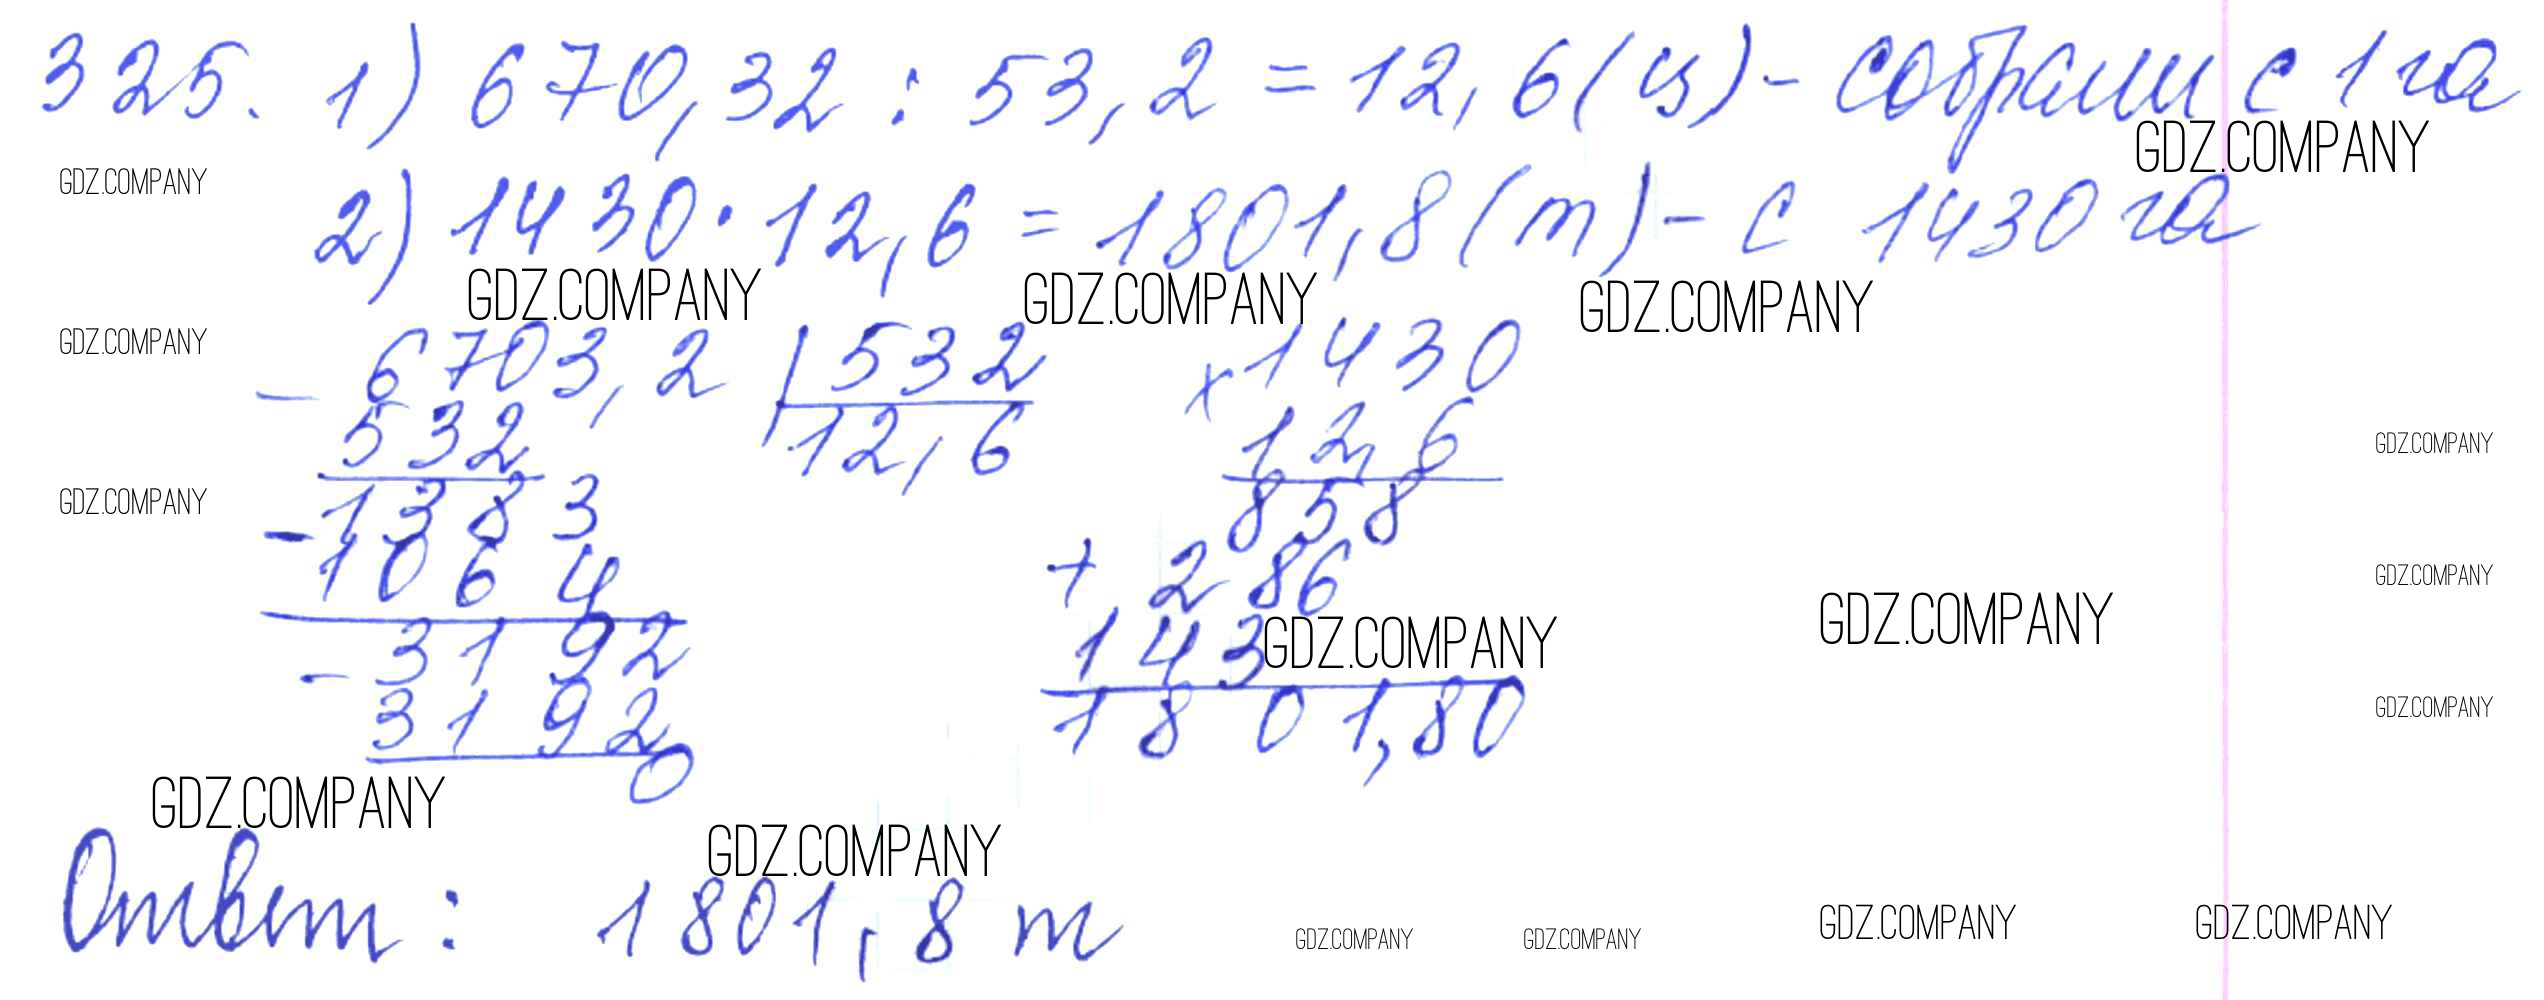 325. 1) 670,32 : 53,2 = 12,6 (ц) - собрали с 1 га
GDZ.COMPANY
GDZ.COMPANY
2) 1430 · 12,6 = 1801,8 (т) - с 1430 га
GDZ.COMPANY GDZ.COMPANY GDZ.COMPANY
GDZ.COMPANY
- 6703,2 | 532 × 1430
532 12,6 12,6
GDZ.COMPANY
GDZ.COMPANY
- 1383 858
- 1064 + 286
GDZ.COMPANY
GDZ.COMPANY
- 3192 143
GDZ.COMPANY
3192 1801,80
GDZ.COMPANY
0
GDZ.COMPANY
GDZ.COMPANY
Ответ: 1801,8 т
GDZ.COMPANY GDZ.COMPANY GDZ.COMPANY GDZ.COMPANY